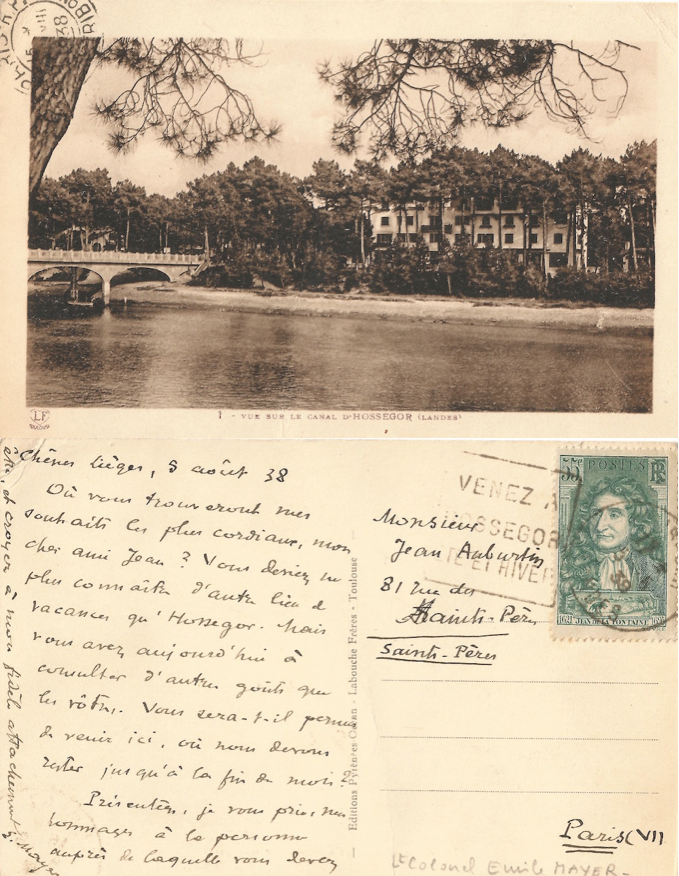 LF
1 - VUE SUR LE CANAL D'HOSSEGOR (LANDES)
Chênes lièges, 5 août 38
Où vous trouveront mes
souhaits les plus cordiaux, mon
cher ami Jean ? Vous deviez ne
plus connaître d'autre lieu de
vacances qu'Hossegor. Mais
vous avez aujourd'hui à
consulter d'autres goûts que
les vôtres. Vous sera-t-il permis
de venir ici, où nous devons
rester jusqu'à la fin du mois ?
Présentez, je vous prie, mes
hommages à la personne
auprès de laquelle vous devez
être, et croyez à mon fidèle attachement
E. Mayer
Editions Pyrénées-Océan - Labouche Frères - Toulouse
VENEZ A
HOSSEGOR
ETE ET HIVER
55c
POSTES
RF
1621
JEAN DE LA FONTAINE
Monsieur
Jean Auburtin
81 Rue des
Saints-Pères
Saints-Pères
Paris (VII
Lt Colonel Emile MAYER-